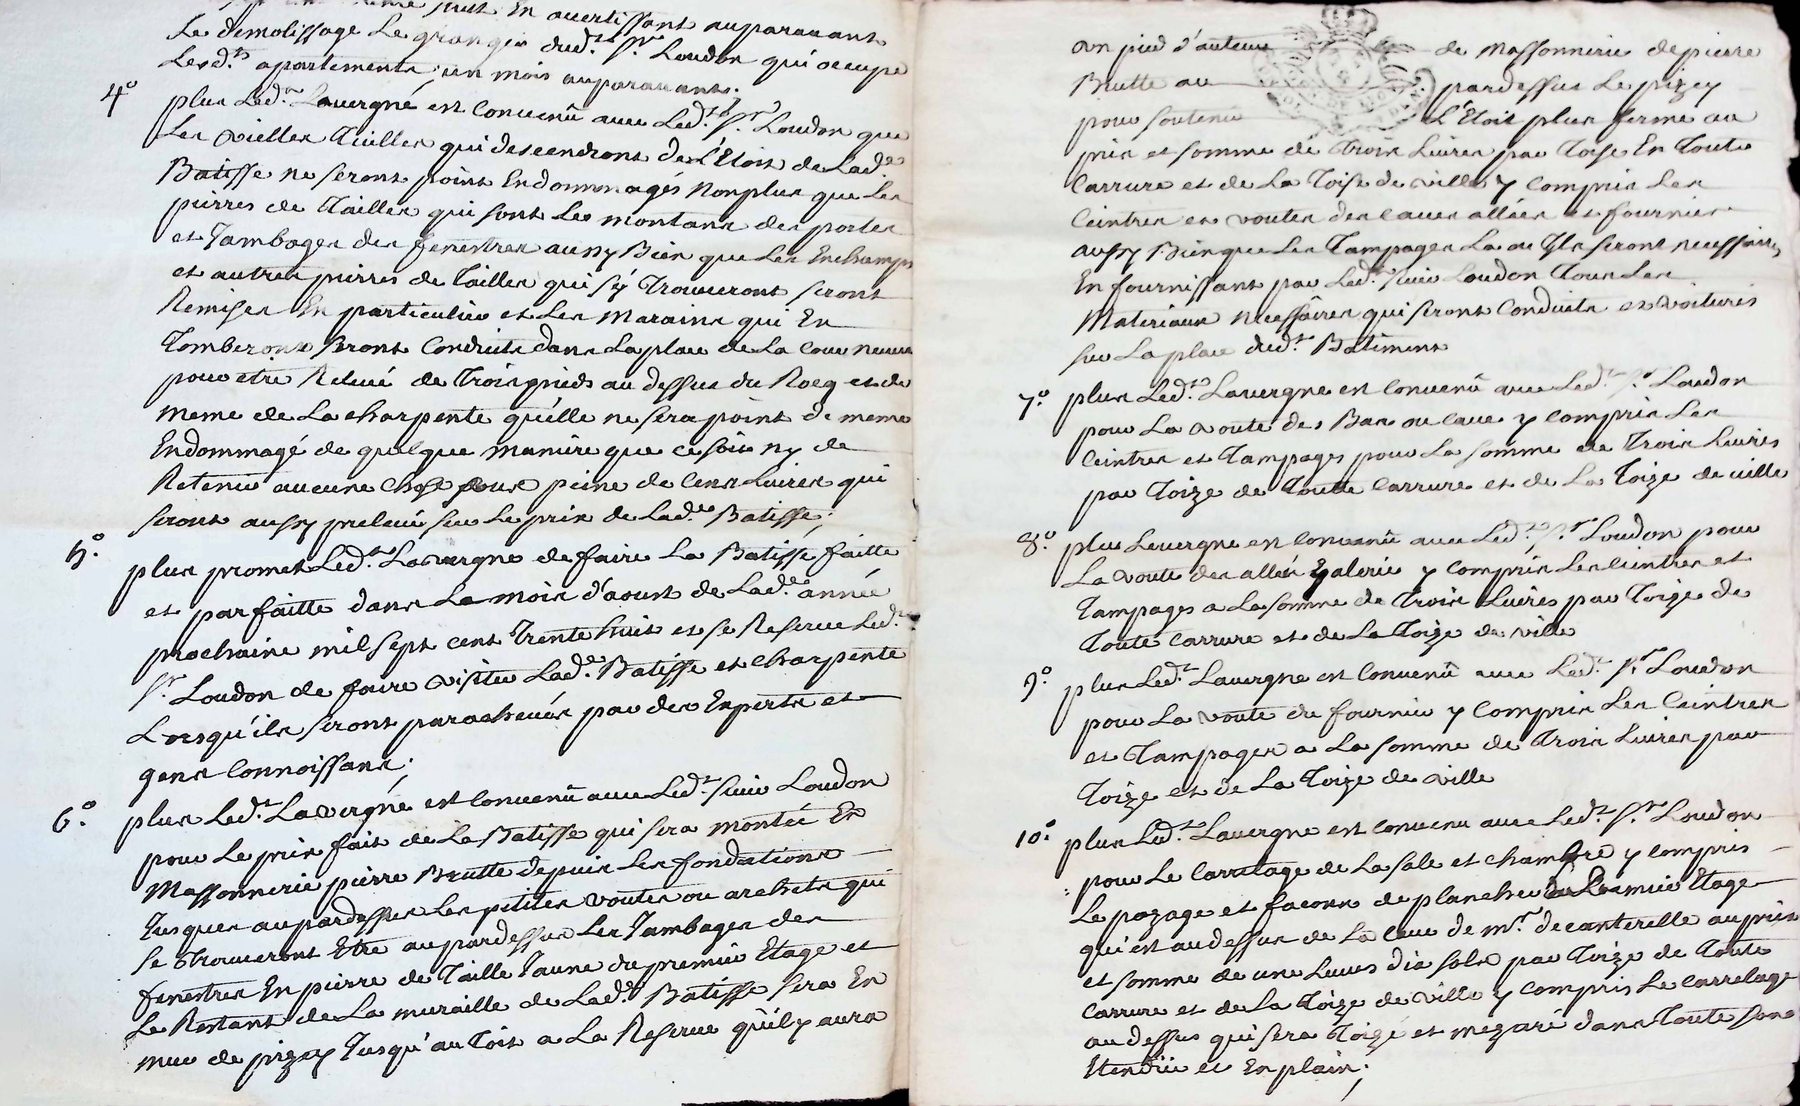 en avertissant auparavant
Le demolissage Le granger dud.t Sr Loudon qui occupe
Lesd.ts apartements, un mois auparavant.
4° plus Led.t Lavergne est Convenû avec Led.t Sr. Loudon que
Les vielles Tuilles qui descendront de L'Etoit de Lad.e
Batisse ne seront point Endommagés Nonplus que Les
pierres de Tailles qui sont Les montans des portes
et Jambages des fenestres aussy Bien que Les
et autres pierres de Tailles qui s'y Trouveront seront
Remises En particulier et Les Marains qui En
Tomberont seront Conduits dans La place de La Cour neuve
pour etre Relevé de Trois pieds au dessus du Rocq et de
meme de La charpente qu'elle ne sera point de meme
Endommagé de quelque maniere que ce soit ny de
Retenir aucune chose pour peine de Cens Livres qui
seront aussy prelevé sur Le prix de Lad.e Batisse;
5° plus promet Led.t Lavergne de faire La Batisse faitte
et parfaitte dans Le mois d'aoust de Lad.e année
prochaine mil sept cent Trente huit et se Reserve Led.t
Sr Loudon de faire visiter Lad.e Batisse et charpente
Lorsqu'ils seront parachevés par des Experts et
gens Connoissans;
6° plus Led.t Lavergne est Convenû avec Led.t sieur Loudon
pour Le prix fait de La Batisse qui sera montée En
Massonnerie pierre Brutte depuis Les fondations
Jusques aupardessus Les petites voutes ou archets qui
se Trouveront Etre aupardessus Les Jambages des
fenestres En pierre de Taille Jaune du premier Etage et
Le Restant de La muraille de Lad.e Batisse sera En
mur de pizey Jusqu'au Toit a La Reserve qu'il y aura
un pied d'auteur de Massonnerie de pierre
Brutte au pardessus Le pizey
pour soutenir L'Etoit plus ferme au
prix et somme de Trois Livres par Toise En Toute
Carrure et de La Toise de ville y Compris Les
Ceintres et voutes des Caves allées et fournier
aussy Bien que Les Tampages La ou Ils seront necessaires
En fournissant par Led.t sieur Loudon Tous Les
Materiaux necessaires qui seront Conduits et voiturés
sur La place dud.t Batiment
7° plus Led.t Lavergne est Convenû avec Led.t Sr Loudon
pour La voute des Bas ou Cave y Compris Les
Ceintres et Tampages pour La somme de Trois Livres
par Toize de Toutte Carrure et de La Toize de ville
8° plus Lavergne est Convenû avec Led.t Sr Loudon pour
La voute des allée galerie y Compris Les Ceintres et
Tampages a La somme de Trois Livres par Toize de
Toute Carrure et de La Toize de ville
9° plus Led.t Lavergne est Convenû avec Led.t Sr. Loudon
pour La voute du fournier y Compris Les Ceintres
et Tampages a La somme de Trois Livres par
Toize et de La Toize de ville
10° plus Led.t Lavergne est Convenu avec Led.t Sr. Loudon
pour Le Carrelage de La sale et chambre y Compris
Le pozage et facons de plancher du Premier Etage
qui est au dessus de La Cave de Mr. decanterelle au prix
et somme de une Livres dix sols par Toize de Toute
Carrure et de La Toize de ville y Compris Le Carrelage
au dessus qui sera Toizé et mezuré dans Toute son
Etendüe et En plain;